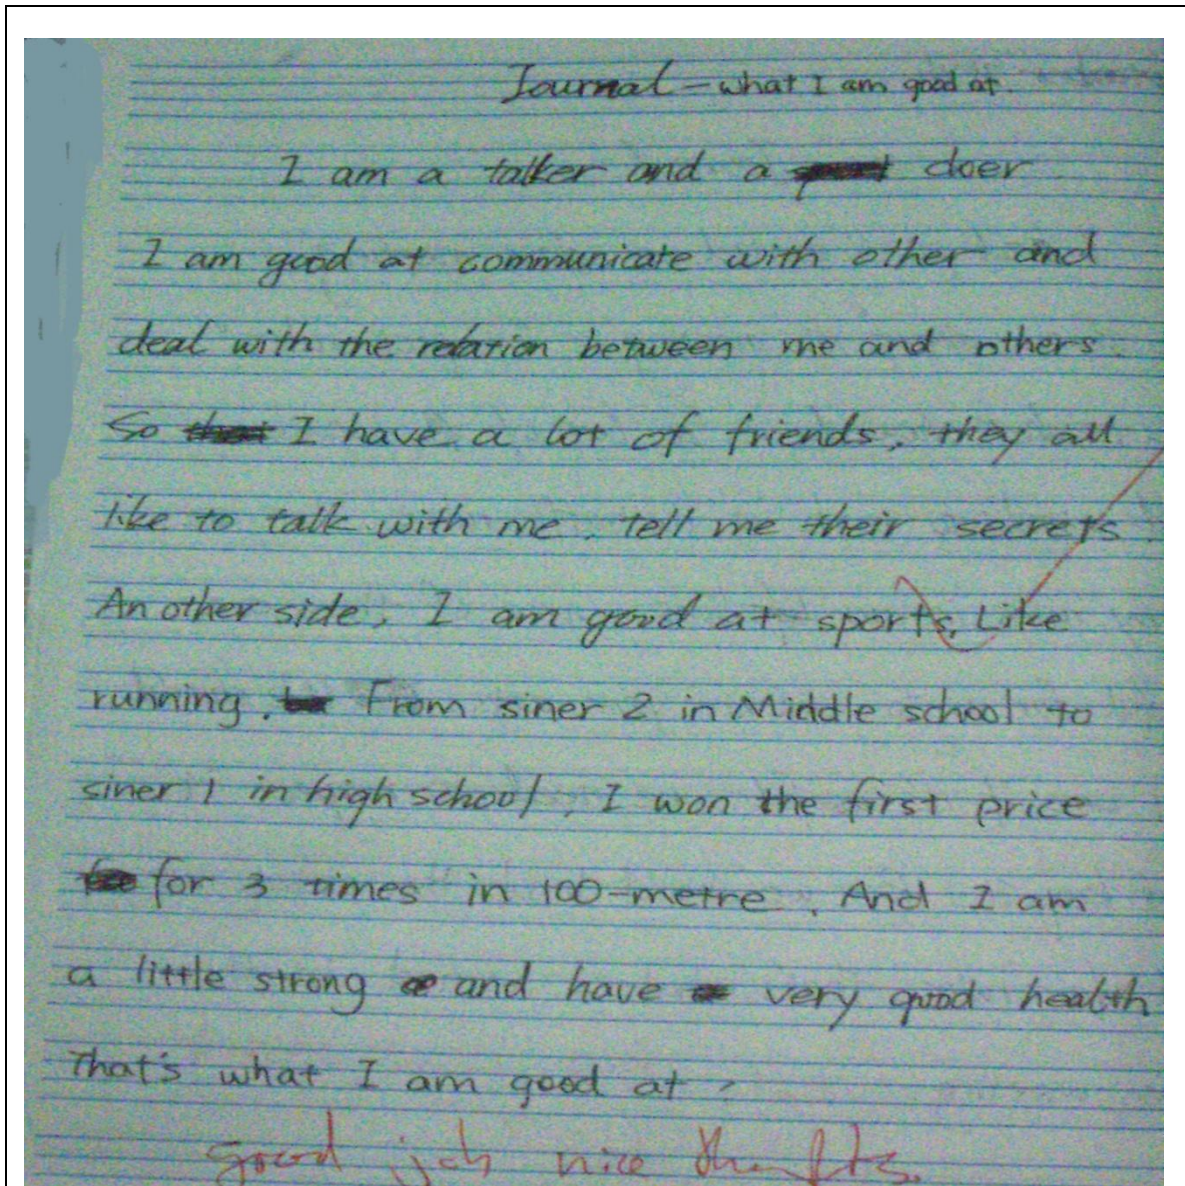 Journal - what I am good at.
I am a talker and a doer
I am good at communicate with other and
deal with the relation between me and others.
So I have a lot of friends, they all
like to talk with me, tell me their secrets.
Another side, I am good at sports, Like
running. From siner 2 in Middle school to
siner 1 in high school, I won the first price
for 3 times in 100-metre. And I am
a little strong and have very good health
That's what I am good at.
good job nice